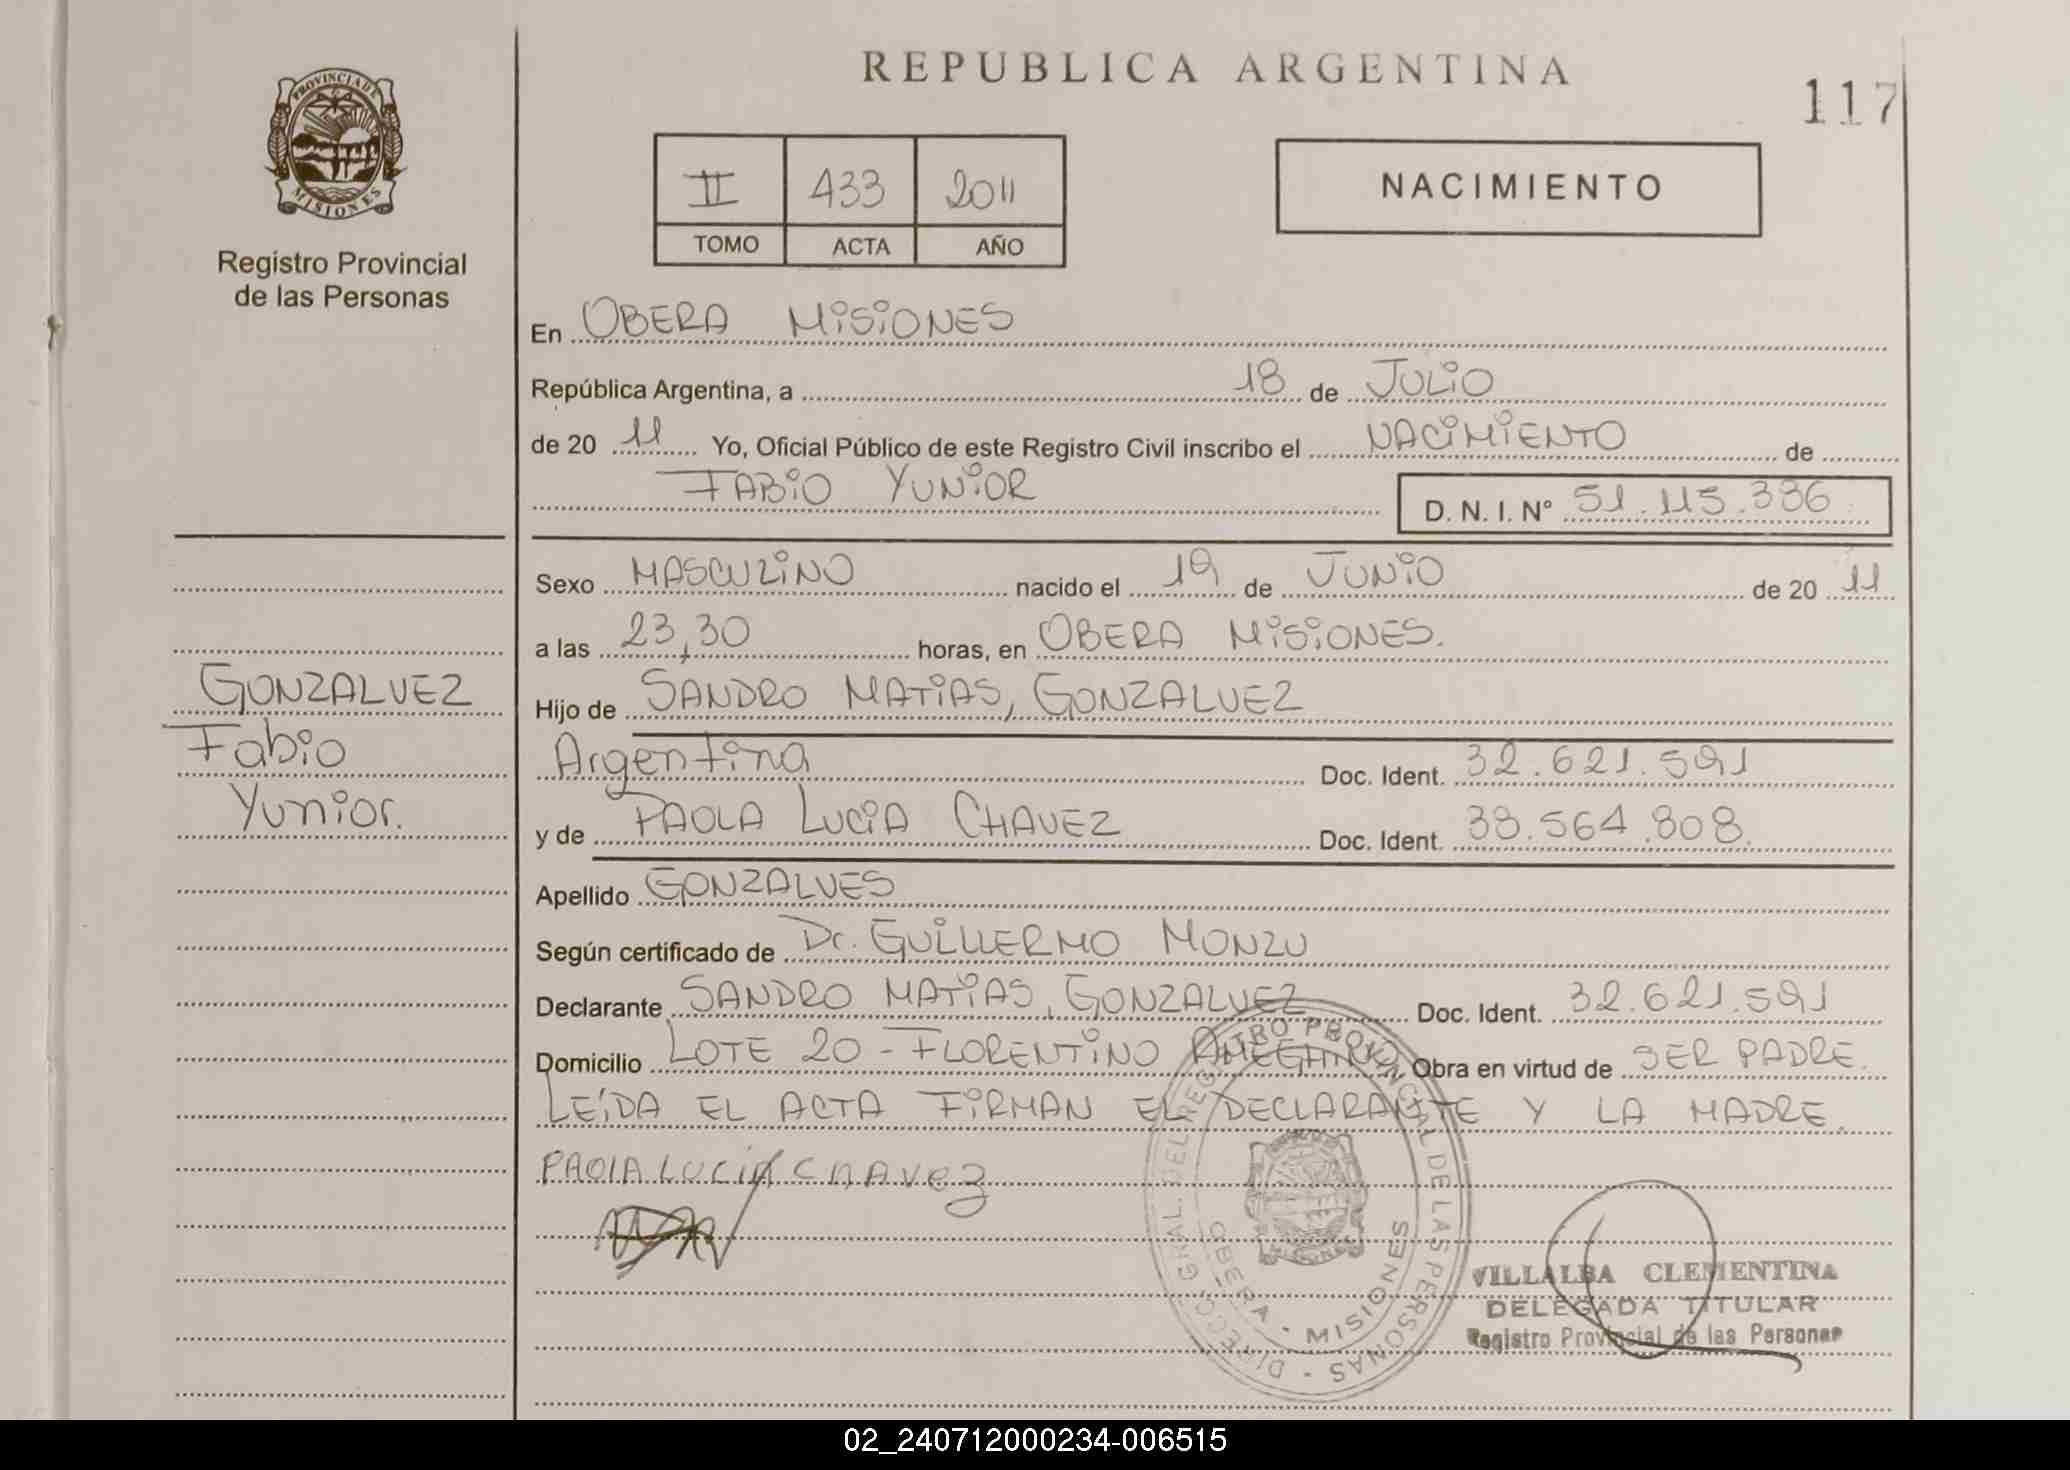 REPUBLICA ARGENTINA
117
PROVINCIA DE
MISIONES
Registro Provincial
de las Personas
II 433 2011
TOMO ACTA AÑO
NACIMIENTO
En OBERA MISIONES
República Argentina, a 18 de JULIO
de 20 11 Yo, Oficial Público de este Registro Civil inscribo el NACIMIENTO de
FABIO YUNIOR
D. N. I. N° 51.115.386
Sexo MASCULINO nacido el 19 de JUNIO de 20 11
a las 23,30 horas, en OBERA MISIONES.
Hijo de SANDRO MATIAS, GONZALVEZ
Argentina Doc. Ident. 32.621.591
y de PAOLA LUCIA CHAVEZ Doc. Ident. 38.564.808.
GONZALVEZ
Fabio
Yunior.
Apellido GONZALVES
Según certificado de Dr. GUILLERMO MONZU
Declarante SANDRO MATIAS, GONZALVEZ Doc. Ident. 32.621.591
Domicilio LOTE 20 - FLORENTINO AMEGHINO Obra en virtud de SER PADRE.
LEÍDA EL ACTA FIRMAN EL DECLARANTE Y LA MADRE.
PAOLA LUCIA CHAVEZ
DIREC. GRAL. DEL REGISTRO PROVINCIAL DE LAS PERSONAS
OBERA - MISIONES
VILLALBA CLEMENTINA
DELEGADA TITULAR
Registro Provincial de las Personas
02_240712000234-006515